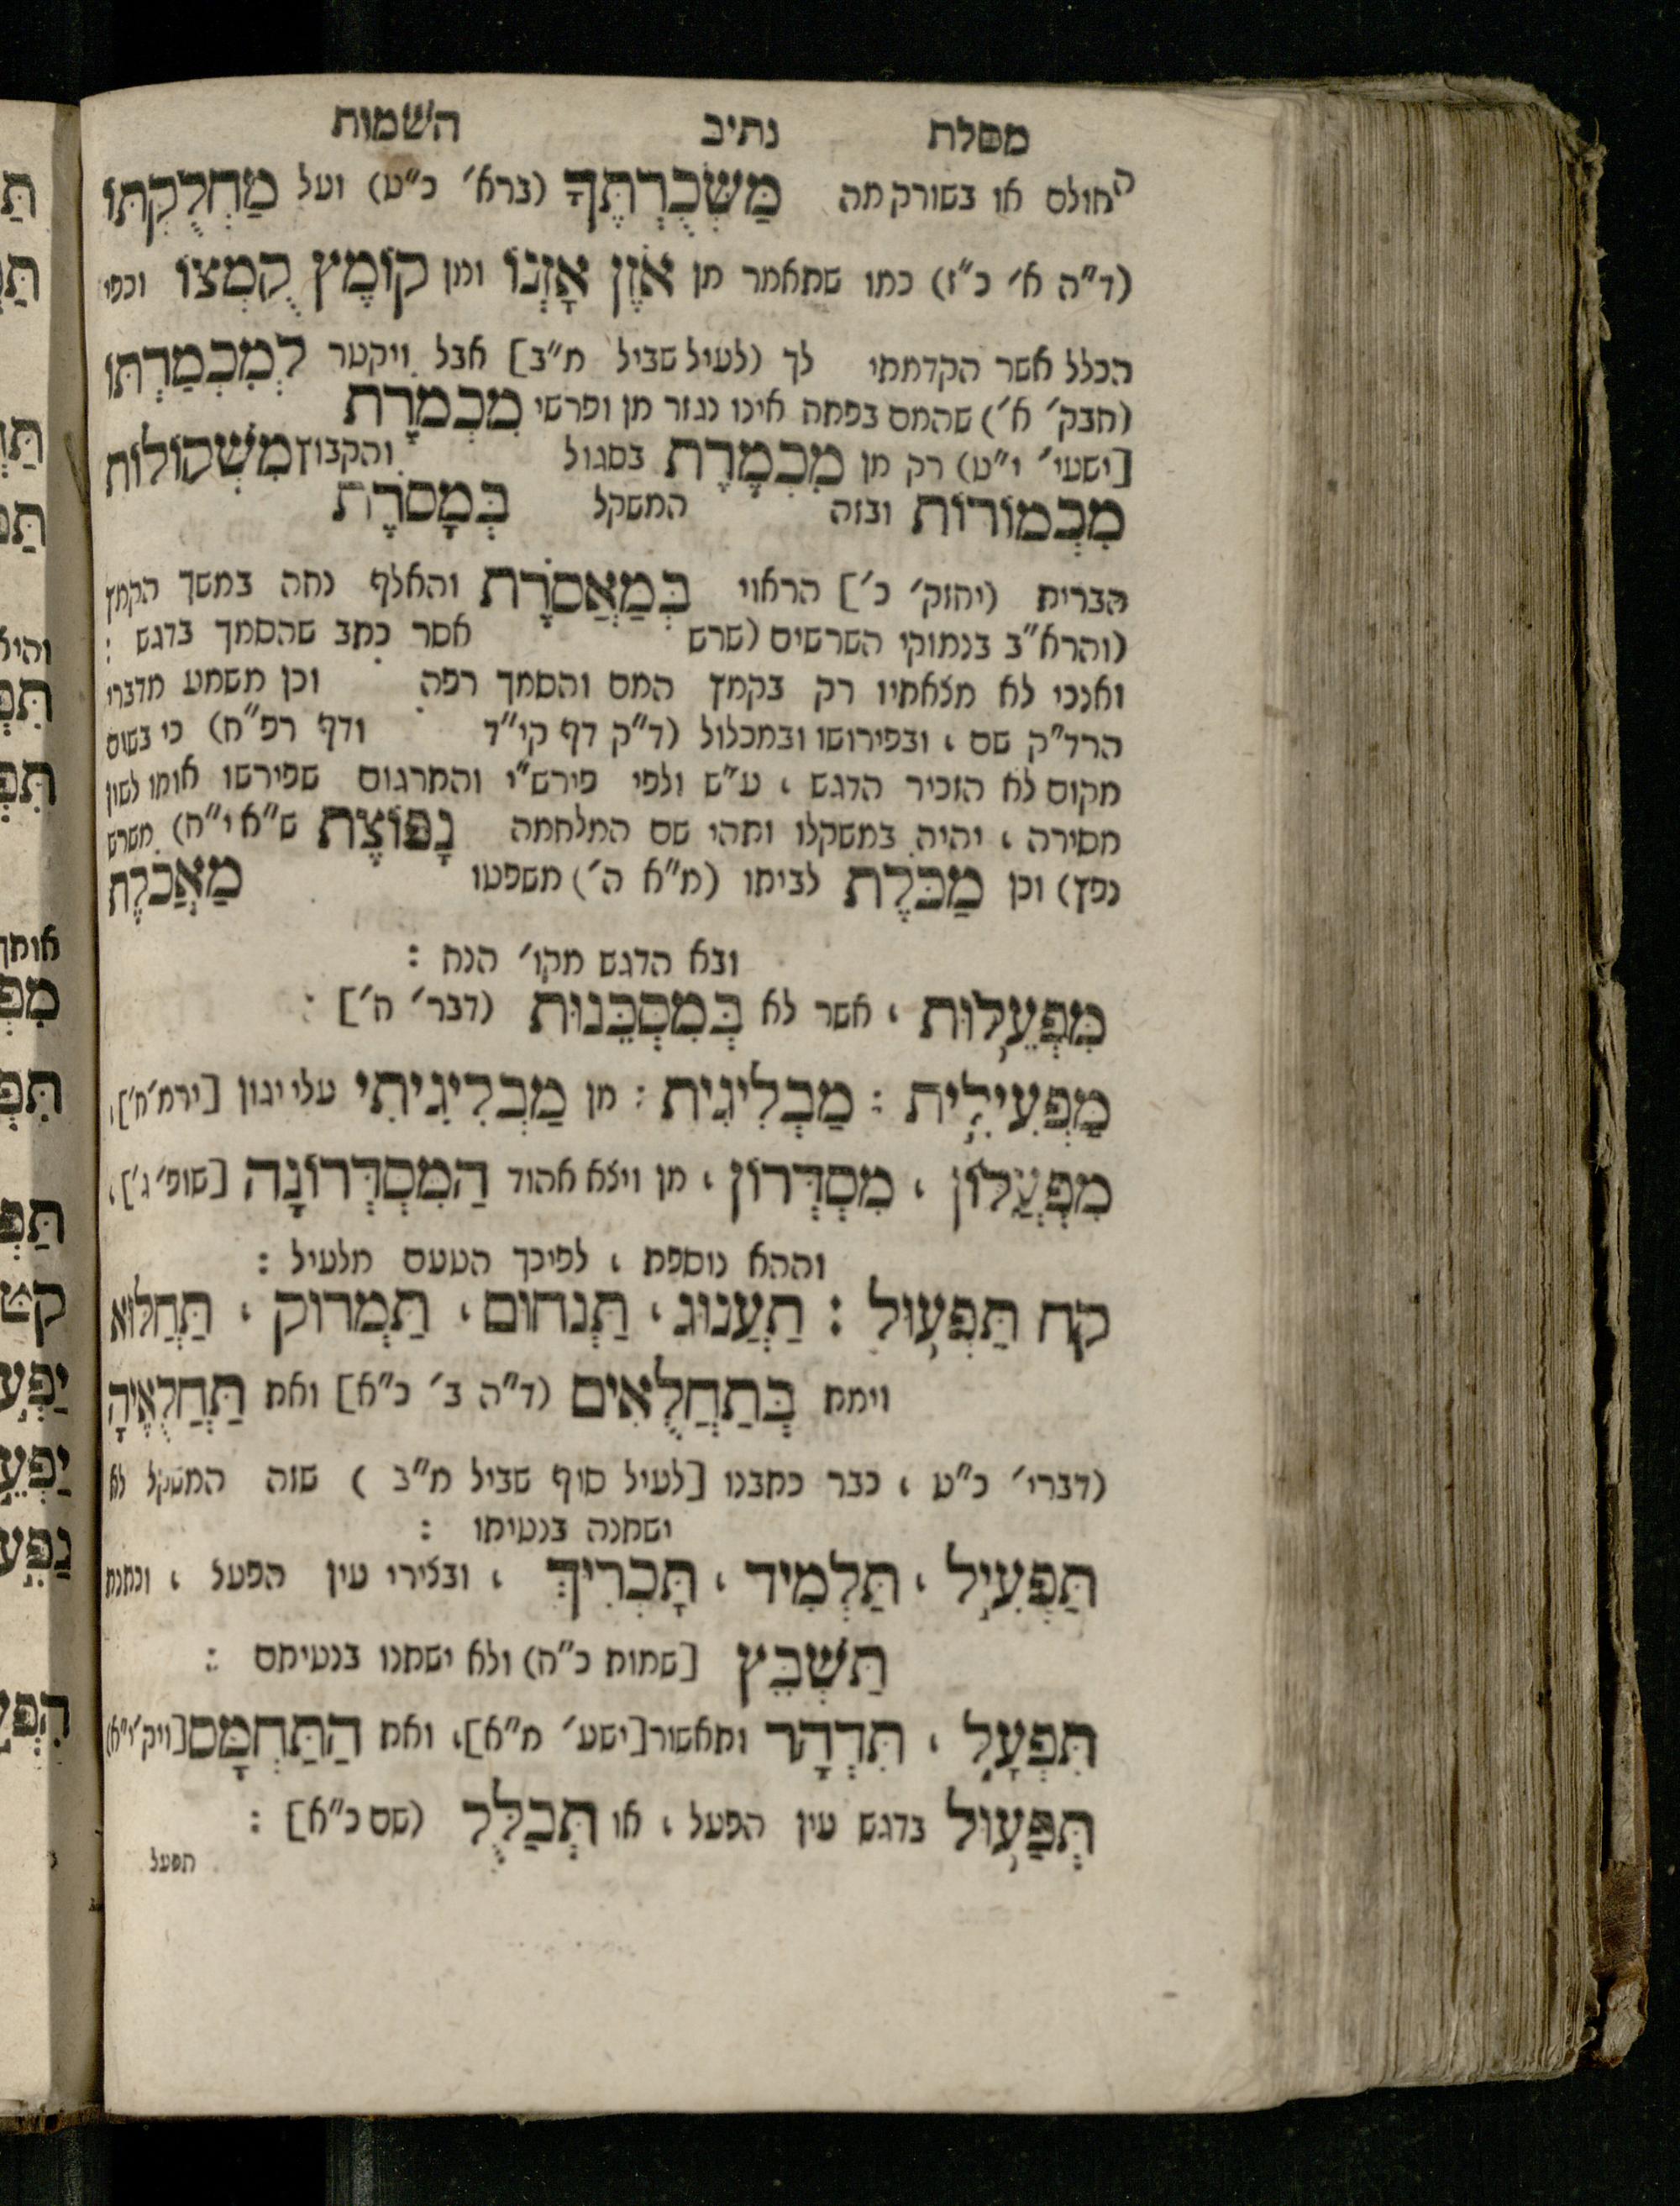 מסלת נתיב השמות
החולם או בשורק מה מַשְׂכֻּרְתֶּךָ (ברא׳ כ״ט) ועל מַחְלֻקְתּוֹ
(ד״ה א׳ כ״ז) כמו שתאמר מן אֹזֶן אָזְנוֹ ומן קוֹמֶץ קֻמְצוֹ וכפי
הכלל אשר הקדמתי לך (לעיל שביל מ״ב] אבל ויקטר לְמִכְמַרְתּוֹ
(חבק׳ א׳) שהמם בפתח אינו נגזר מן ופרשי מִכְמֹרֶת
[ישעי׳ י״ט) רק מן מִכְמֶרֶת בסגול והקבוץ מִשְׁקוֹלוֹת
מִכְמוֹרוֹת ובזה המשקל בְּמָסֹרֶת
הברית (יחזק׳ כ׳] הראוי בְּמַאֲסֹרֶת והאלף נחה במשך הקמץ
(והרא״ב בנמוקי השרשים (שרש אסר כתב שהסמך בדגש :
ואנכי לא מצאתיו רק בקמץ המם והסמך רפה וכן משמע מדברי
הרד״ק שם , ובפירושו ובמכלול (ד״ק דף קי״ד ודף רפ״ח) כי בשום
מקום לא הזכיר הדגש , ע״ש ולפי פירש״י והתרגום שפירשו אותו לשון
מסירה , יהיה במשקלו ותהי שם המלחמה נָפוֹצֶת ש״א י״ח) משרש
נפץ) וכן מַכֹּלֶת לביתו (מ״א ה׳) משפטו מַאֲכֹלֶת
ובא הדגש מקו׳ הנח :
מִפְעֵלוּת , אשר לא בְּמִסְכֵּנוּת (דבר׳ ח׳] :
מַפְעִילִית : מַבְלִיגִית : מן מַבְלִיגִיתִי עלי יגון [ירמ׳ ח׳],
מִפְעֲלוֹן , מִסְדְּרוֹן , מן ויצא אהוד הַמִסְדְּרוֹנָה [שופ׳ ג׳],
וההא נוספת , לפיכך הטעם מלעיל :
קח תַּפְעוּל : תַעֲנוּג , תַּנְחוּם , תַּמְרוּק , תַּחֲלוּא
וימת בְּתַחֲלֻאִים (ד״ה ב׳ כ״א] ואת תַּחֲלֻאֶיהָ
(דברי׳ כ״ט , כבר כתבנו [לעיל סוף שביל מ״ב ) שזה המשקל לא
ישתנה בנטיתו :
תַּפְעִיל , תַּלְמִיד , תָּכְרִיךְ , ובצירי עין הפעל , וכתנת
תַּשְׁבֵּץ [שמות כ״ח) ולא ישתנו בנטיתם :
תִּפְעָל , תִּדְהָר ותאשור [ישע׳ מ״א], ואת הַתַּחְמָס [ויק׳ י״א)
תְּפַּעוּל בדגש עין הפעל , או תְּבַלֻּל (שם כ״א] :
תפעל